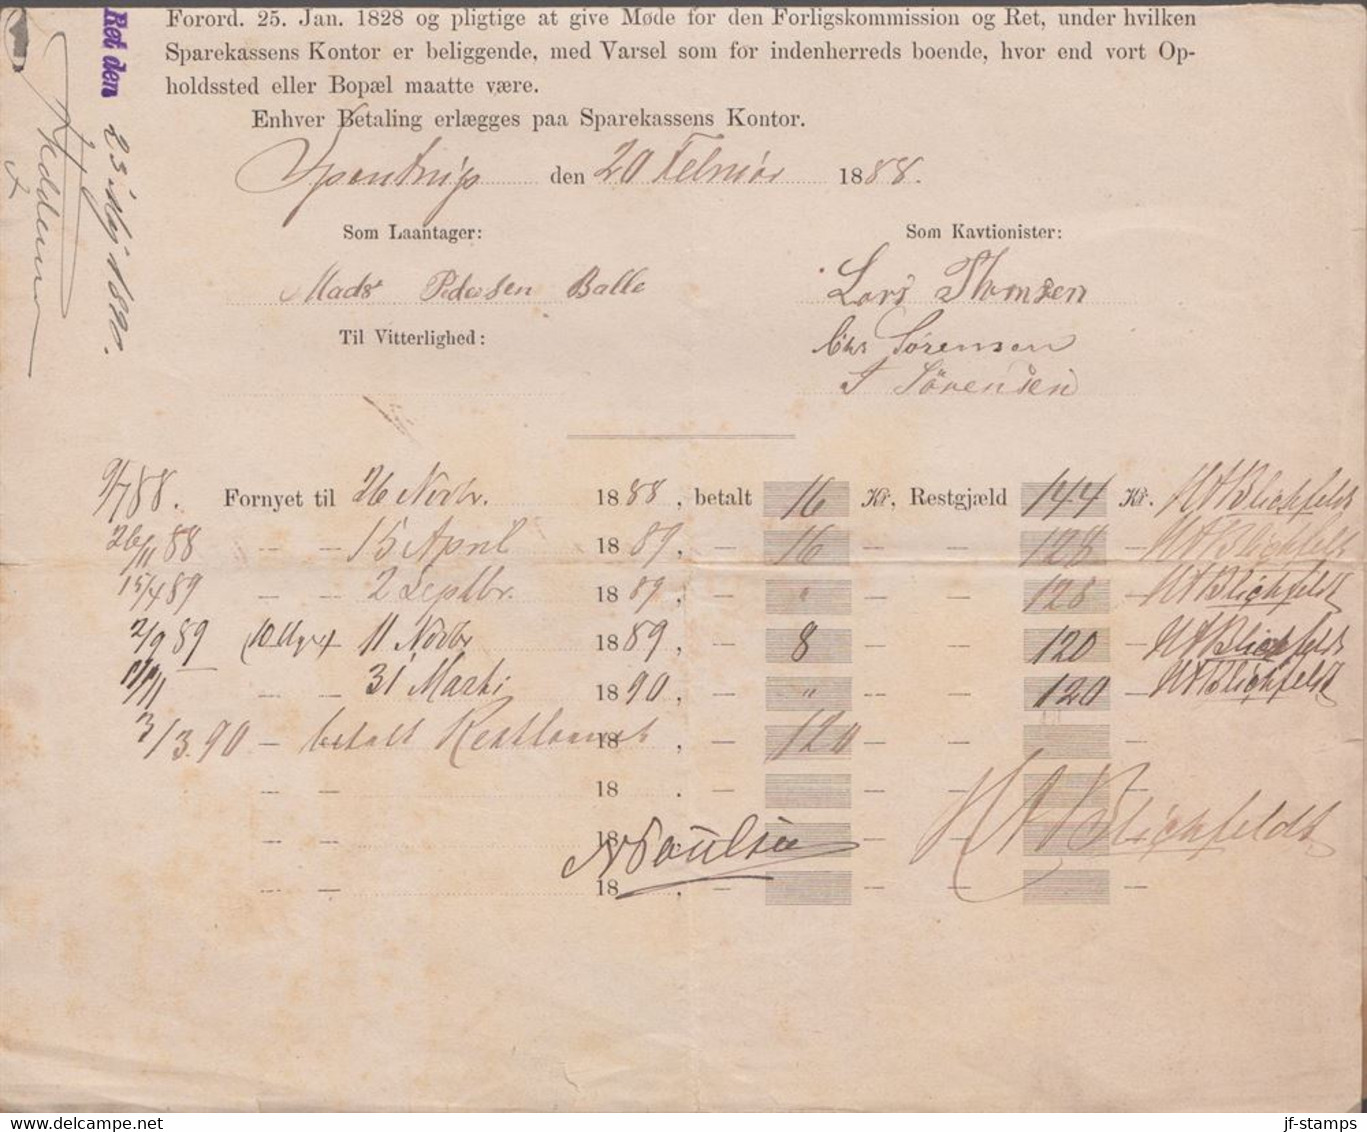 Forord. 25. Jan. 1828 og pligtige at give Møde for den Forligskommission og Ret, under hvilken
Sparekassens Kontor er beliggende, med Varsel som for indenherreds boende, hvor end vort Op-
holdssted eller Bopæl maatte være.
Enhver Betaling erlægges paa Sparekassens Kontor.
Spentrup den 20 Februar 1888.
Som Laantager:
Som Kavtionister:
Mads Pedersen Balle
Lars Thomsen
Til Vitterlighed:
Chr Sørensen
S Sørensen
9/7 88. Fornyet til 26 Novbr. 1888, betalt 16 Kr. Restgjæld 144 Kr. HABlichfeldt
26/11 88 — — 15 April 1889, — 16 — — 128 — HABlichfeldt
15/4 89 — — 2 Septbr. 1889, — " — — 128 — HABlichfeldt
2/9 89 11 Novbr 1889, — 8 — — 120 — HABlichfeldt
11/11 — — 31 Marts 1890, — " — — 120 — HABlichfeldt
3/3.90 — betalt 18 , — 120 — — —
— — 18 . — — — —
— — 18 — — HABlichfeldt
NPoulsen
— — 18 , — — — —
Ret den 23 1890.
jf-stamps